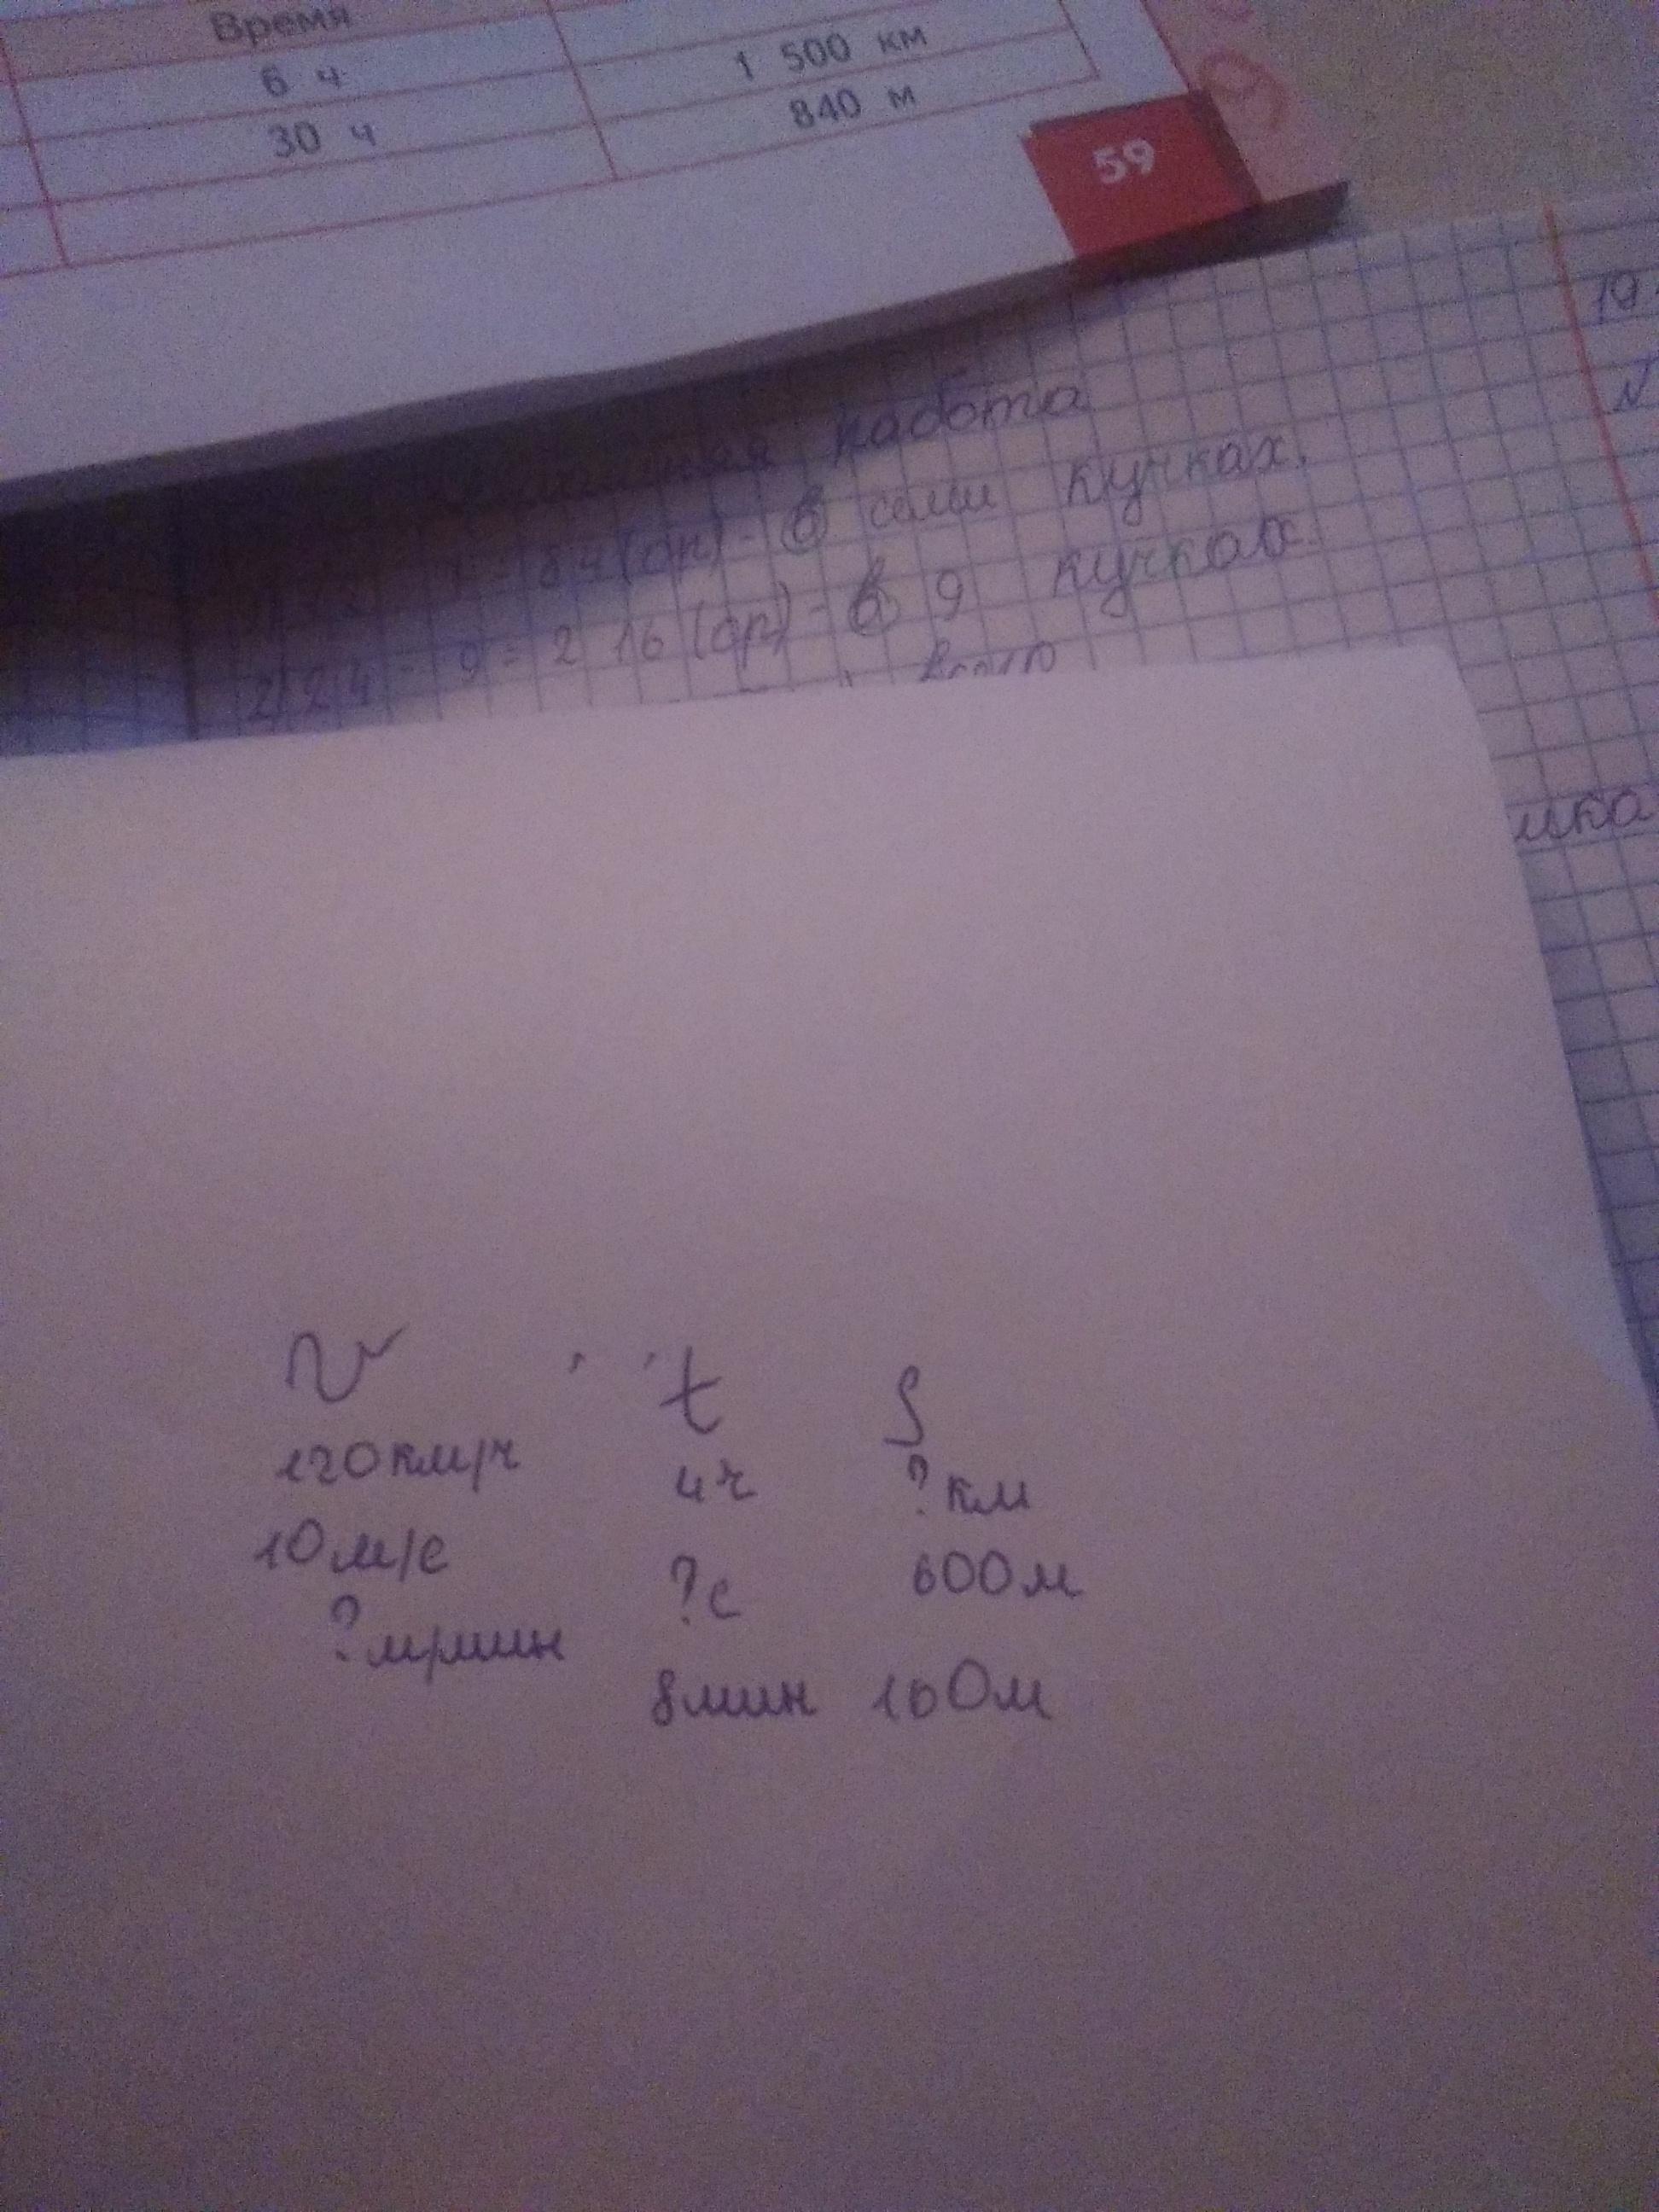 Время
6 ч 1 500 км
30 ч 840 м
59
19
работа
(ор) - в семи кучках.
2) 24 9 = 216 (ор) - в 9 кучках.
v t S
120км/ч 4ч ?км
10м/с ?с 600м
?м/мин 8мин 160м